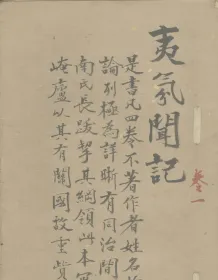 卷一
夷氛聞記
是書凡四卷不著作者姓名
論列極為詳晰有同治間
南氏長跋挈其綱領此本
崦廬以其有關國故重貲